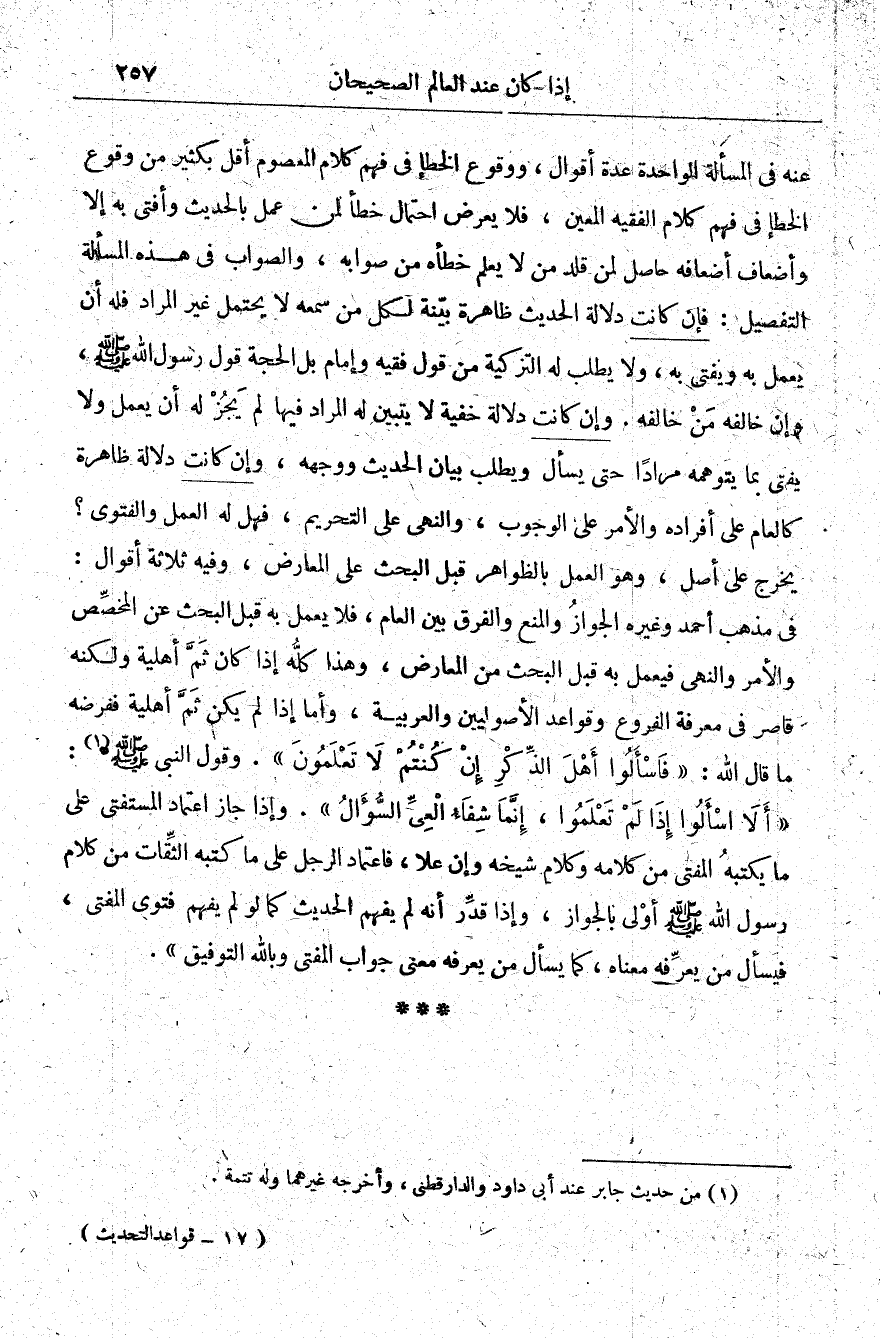 إذا كان عند العالم الصحيحان ٢٥٧
عنه فى المسألة الواحدة عدة أقوال ، ووقوع الخطإ فى فهم كلام المعصوم أقل بكثير من وقوع
الخطإ فى فهم كلام الفقيه المعين ، فلا يعرض احتمال خطأ لمن عمل بالحديث وأفتى به إلا
وأضعاف أضعافه حاصل لمن قلد من لا يعلم خطأه من صوابه ، والصواب فى هذه المسألة
التفصيل : فإن كانت دلالة الحديث ظاهرة بيّنة لكل من سمعه لا يحتمل غير المراد فله أن
يعمل به ويفتى به ، ولا يطلب له التزكية من قول فقيه وإمام بل الحجة قول رسول الله ﷺ ،
وإن خالفه مَنْ خالفه . وإن كانت دلالة خفية لا يتبين له المراد فيها لم يَجُزْ له أن يعمل ولا
يفتى بما يتوهمه مرادًا حتى يسأل ويطلب بيان الحديث ووجهه ، وإن كانت دلالة ظاهرة
كالعام على أفراده والأمر على الوجوب ، والنهى على التحريم ، فهل له العمل والفتوى ؟
يخرج على أصل ، وهو العمل بالظواهر قبل البحث على المعارض ، وفيه ثلاثة أقوال :
فى مذهب أحمد وغيره الجوازُ والمنع والفرق بين العام ، فلا يعمل به قبل البحث عن المخصِّص
والأمر والنهى فيعمل به قبل البحث من المعارض ، وهذا كلُّه إذا كان ثَمَّ أهلية ولكنه
قاصر فى معرفة الفروع وقواعد الأصوليين والعربية ، وأما إذا لم يكن ثَمَّ أهلية ففرضه
ما قال الله : « فَاسْأَلُوا أَهْلَ الذِّكْرِ إِنْ كُنْتُمْ لَا تَعْلَمُونَ » . وقول النبى ﷺ (١) :
« أَلَا اسْأَلُوا إِذَا لَمْ تَعْلَمُوا ، إِنَّمَا شِفَاءُ الْعِىِّ السُّؤَالُ » . وإذا جاز اعتماد المستفتى على
ما يكتبهُ المفتى من كلامه وكلام شيخه وإن علا ، فاعتماد الرجل على ما كتبه الثِّقات من كلام
رسول الله ﷺ أوْلى بالجواز ، وإذا قدِّر أنه لم يفهم الحديث كما لو لم يفهم فتوى المفتى ،
فيسأل من يعرِّفه معناه ، كما يسأل من يعرفه معنى جواب المفتى وبالله التوفيق » .
* * *
(١) من حديث جابر عند أبى داود والدارقطنى ، وأخرجه غيرهما وله تتمة .
( ١٧ – قواعد التحديث )